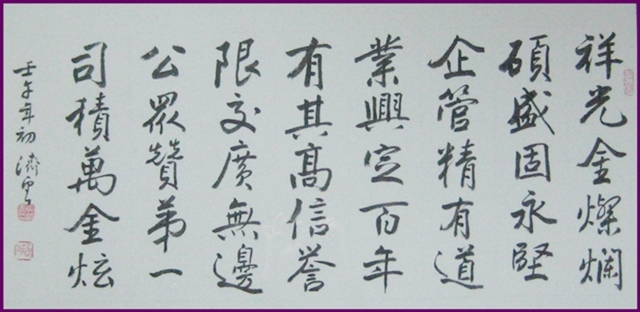 祥光金燦爛
碩盛固永堅
企管精有道
業興定百年
有其高信譽
限交廣無邊
公眾贊第一
司積萬金炫
壬午年初濟